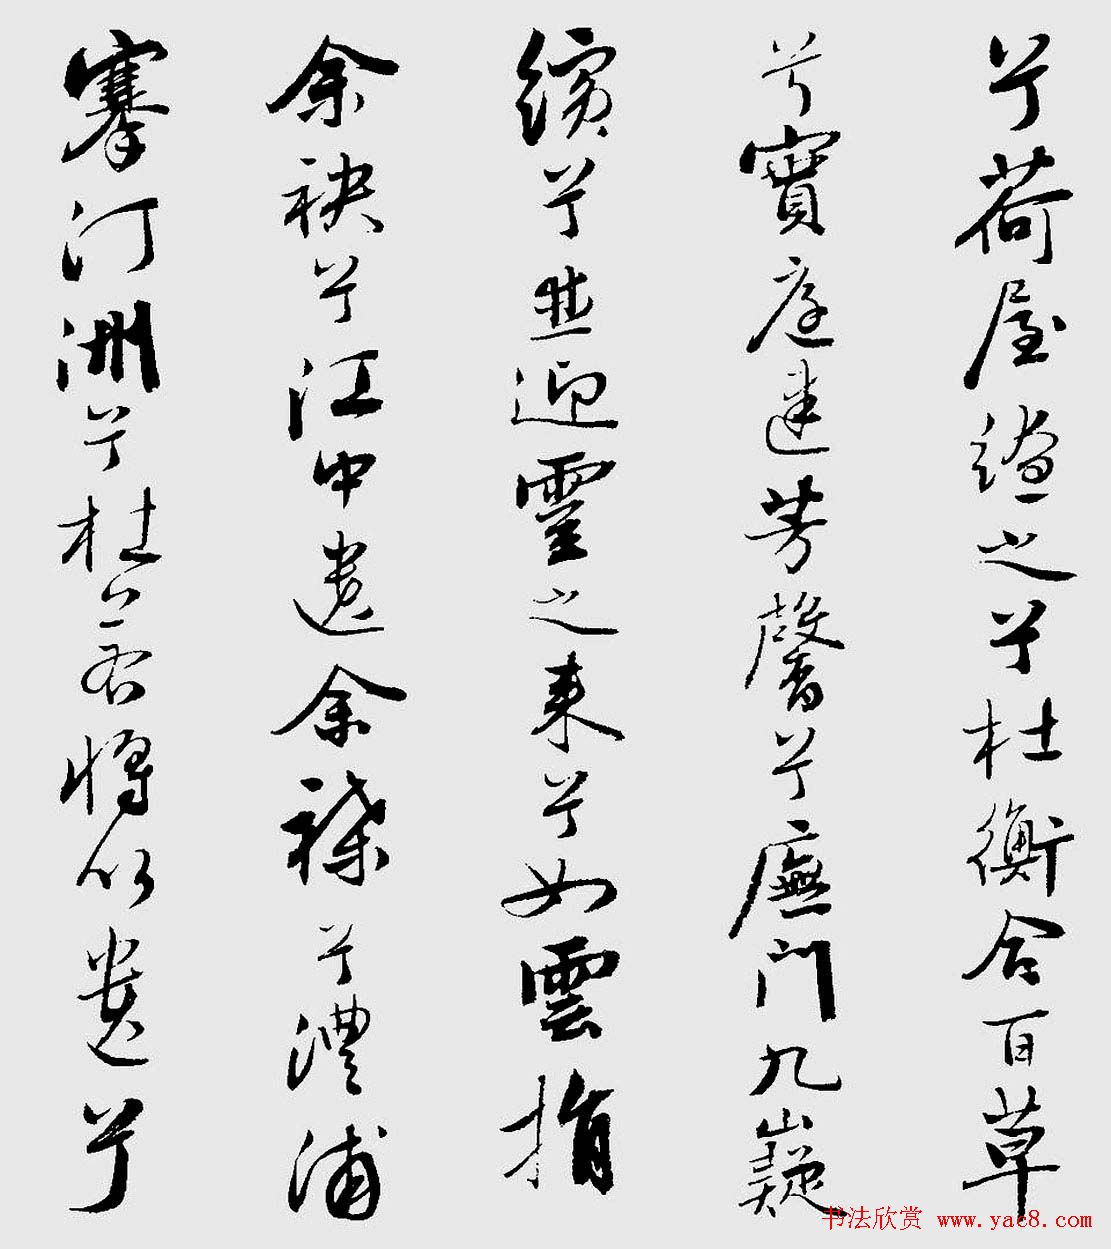 兮荷屋繚之兮杜衡合百草
兮實庭建芳馨兮廡門九嶷
繽兮並迎靈之來兮如雲捐
余袂兮江中遺余褋兮澧浦
搴汀洲兮杜若將以遺兮
书法欣赏 www.yac8.com